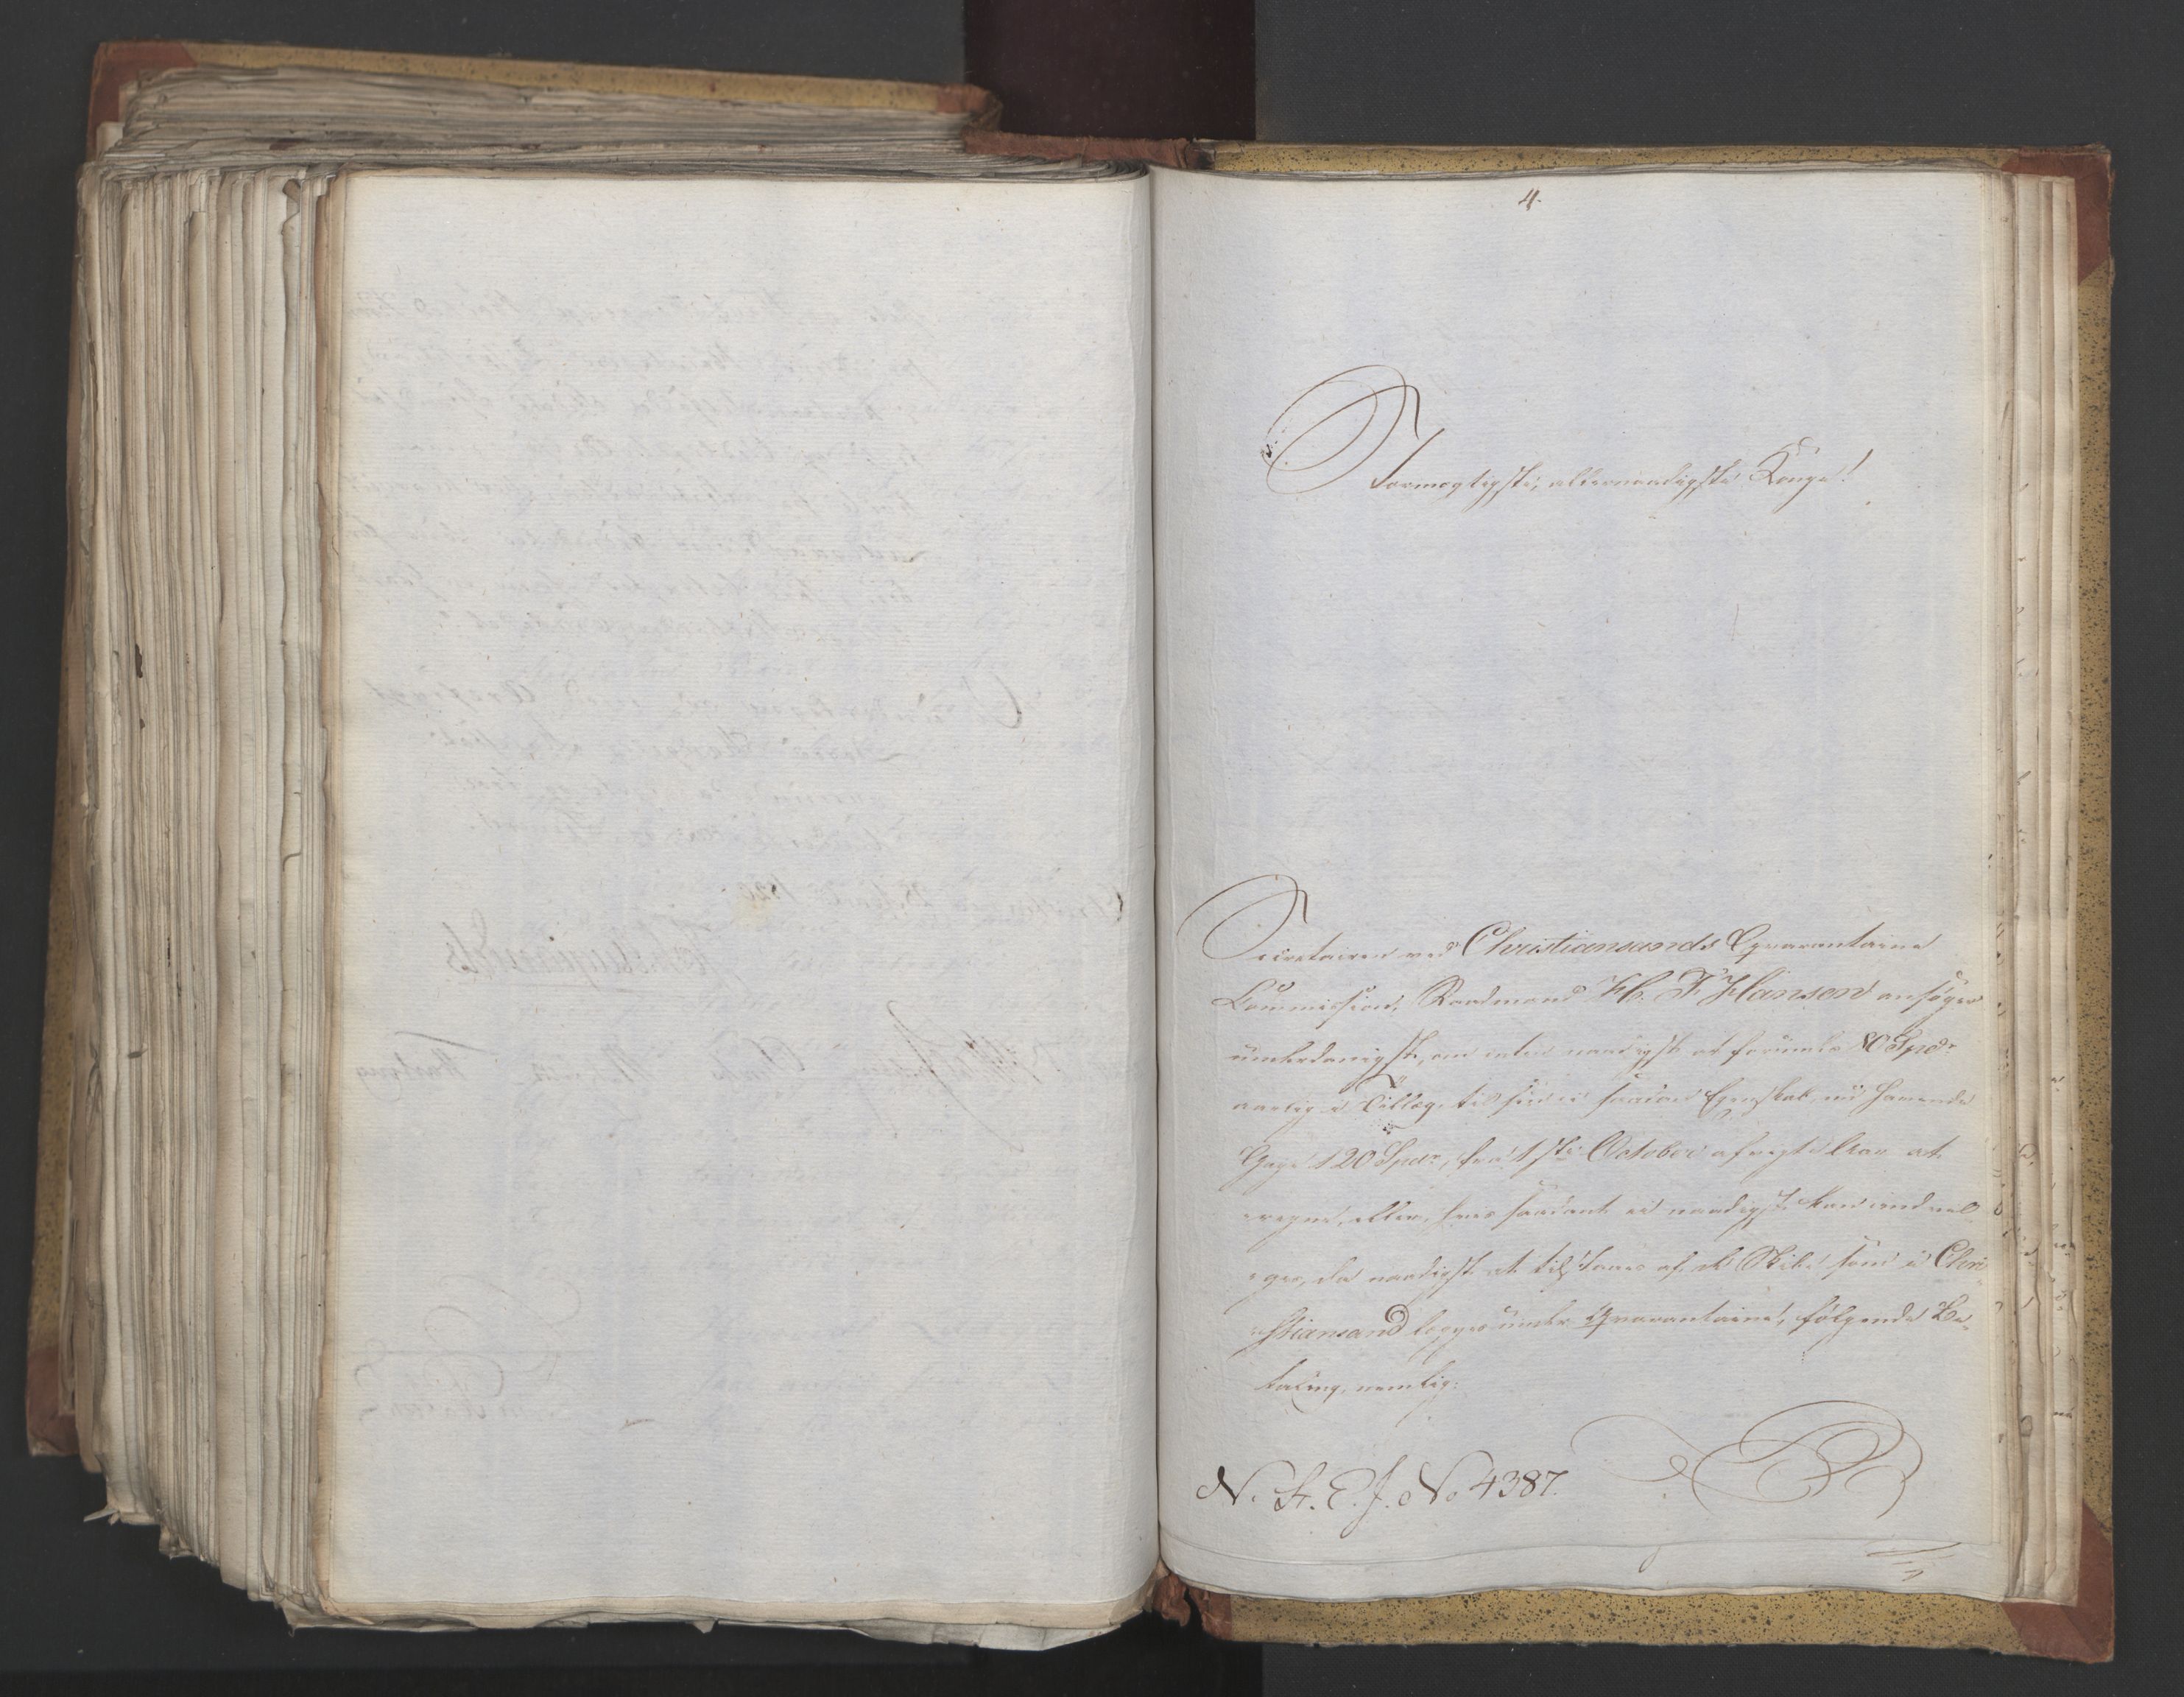 4.
Stormægtigste, allernaadigste Konge!
Secretairen ved Christiansands Qvarantaine
Commission, Raadmand H. F. Hansen ansøger
underdanigst, om enten naadigst at forunde 80 Spdr
aarlig i Tillæg til sin i saadan Egenskab nu havende
Gage 120 Spdr, fra 1ste October afvigte Aar at
regne, eller, hvis saadant ei naadigst kan indvil-
ges, da naadigst at tilstaaes af de Skibe som i Chri-
stiansand lægges under Qvarantaine, følgende Be-
taling, nemlig:
N. St. E. J. No 4387.